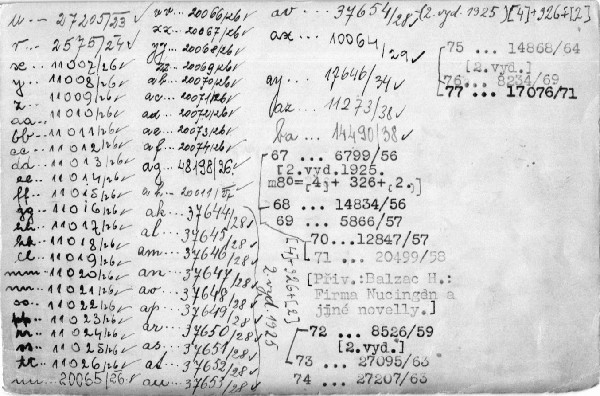 u — 27205/23 ✓
v... 2575/24 ✓
x... 11007/26 ✓
y... 11008/26 ✓
z... 11009/26 ✓
aa... 11010/26 ✓
bb... 11011/26 ✓
cc... 11012/26 ✓
dd... 11013/26 ✓
ee... 11014/26 ✓
ff... 11015/26 ✓
gg... 11016/26 ✓
hh... 11017/26 ✓
kk... 11018/26 ✓
ll... 11019/26 ✓
mm... 11020/26 ✓
nn... 11021/26 ✓
oo... 11022/26 ✓
pp... 11023/26 ✓
rr... 11024/26 ✓
ss... 11025/26 ✓
tt... 11026/26 ✓
uu... 20065/26 ✓
vv... 20066/26 ✓
xx... 20067/26 ✓
yy... 20068/26 ✓
zz... 20069/26 ✓
ab... 20070/26 ✓
ac... 20071/26 ✓
ad... 20072/26 ✓
ae... 20073/26 ✓
af... 20074/26 ✓
ag... 48198/26 ✓
ah...
ak... 37644/28 ✓
al... 37645/28 ✓
am... 37646/28 ✓
an... 37647/28 ✓
ao... 37648/28 ✓
ap... 37649/28 ✓
ar... 37650/28 ✓
as... 37651/28 ✓
at... 37652/28 ✓
au... 37653/28 ✓
[4]+326+[2]
2.vyd.1925
av... 37654/28 ✓ (2.vyd.1925) [4]+326+[2]
ax... 10064/29 ✓
ay... 17646/34 ✓
az... 11273/38 ✓
ba... 14490/38 ✓
67 ... 6799/56
[2.vyd.1925.
m8º=[4]+ 326+[2.]
68 ... 14834/56
69 ... 5866/57
70...12847/57
71 ... 20499/58
[Přiv.:Balzac H.:
Firma Nucingen a
jiné novelly.]
72 ... 8526/59
[2.vyd.]
73 ... 27095/63
74 ... 27207/63
75 ... 14868/64
[2.vyd.]
76... 8234/69
77 ... 17076/71